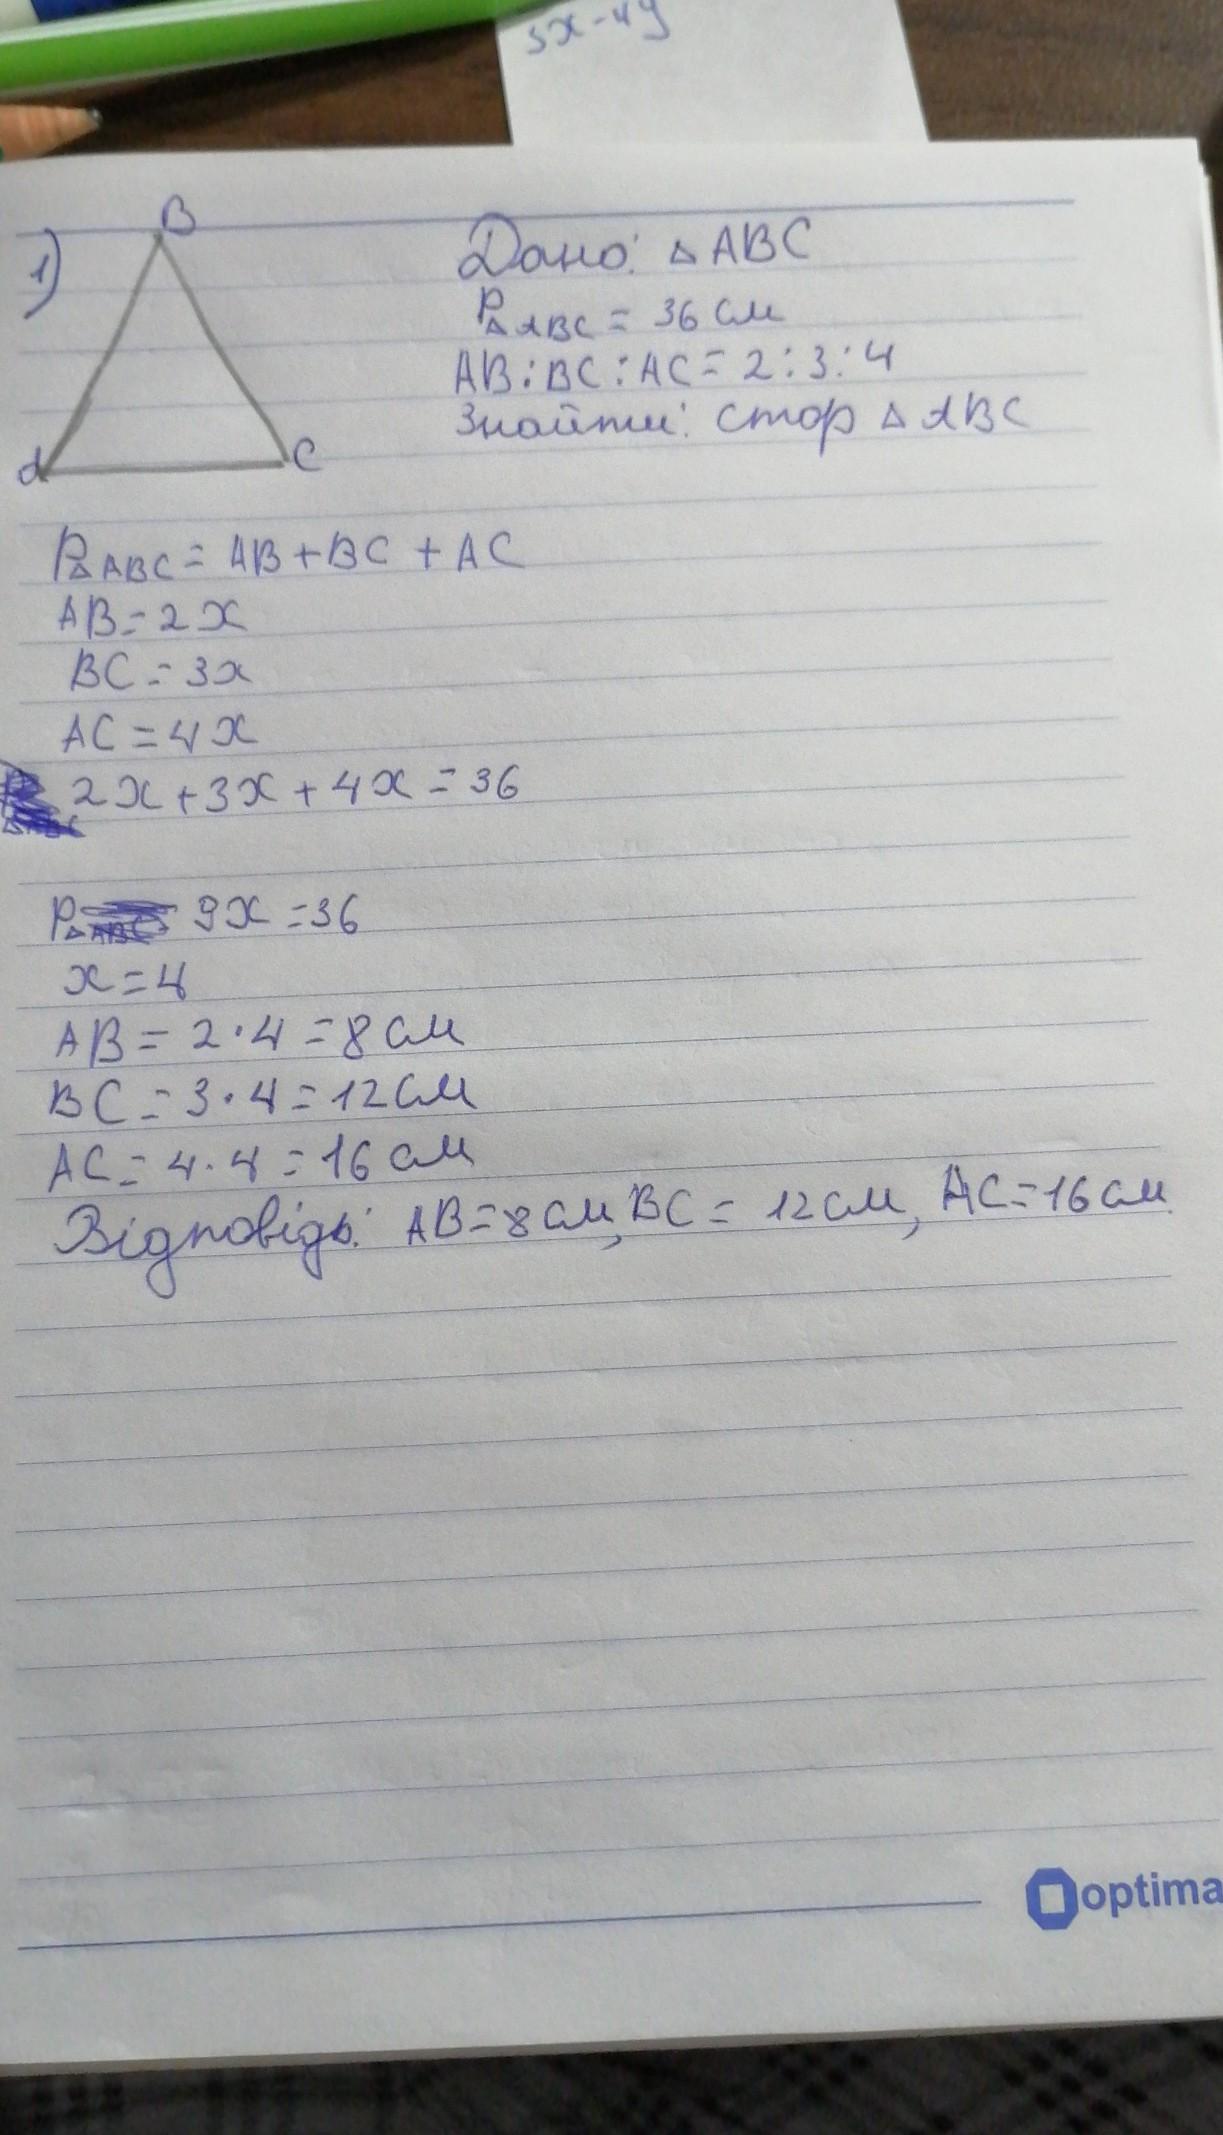 3x-4y
1)
B
A
C
Дано: △ABC
P△ABC = 36 см
AB:BC:AC = 2:3:4
Знайти: стор △ABC
P△ABC = AB+BC+AC
AB=2x
BC=3x
AC=4x
2x+3x+4x=36
9x=36
x=4
AB=2·4=8см
BC=3·4=12см
AC=4·4=16см
Відповідь: AB=8см, BC=12см, AC=16см.
optima